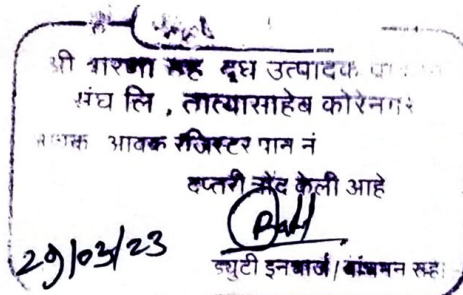 श्री वारणा सह दूध उत्पादक
संघ लि , तात्यासाहेब कोरेनगर
आवक रजिस्टर पान नं
दप्तरी नोंद केली आहे
29/03/23
ड्युटी इनचार्ज /